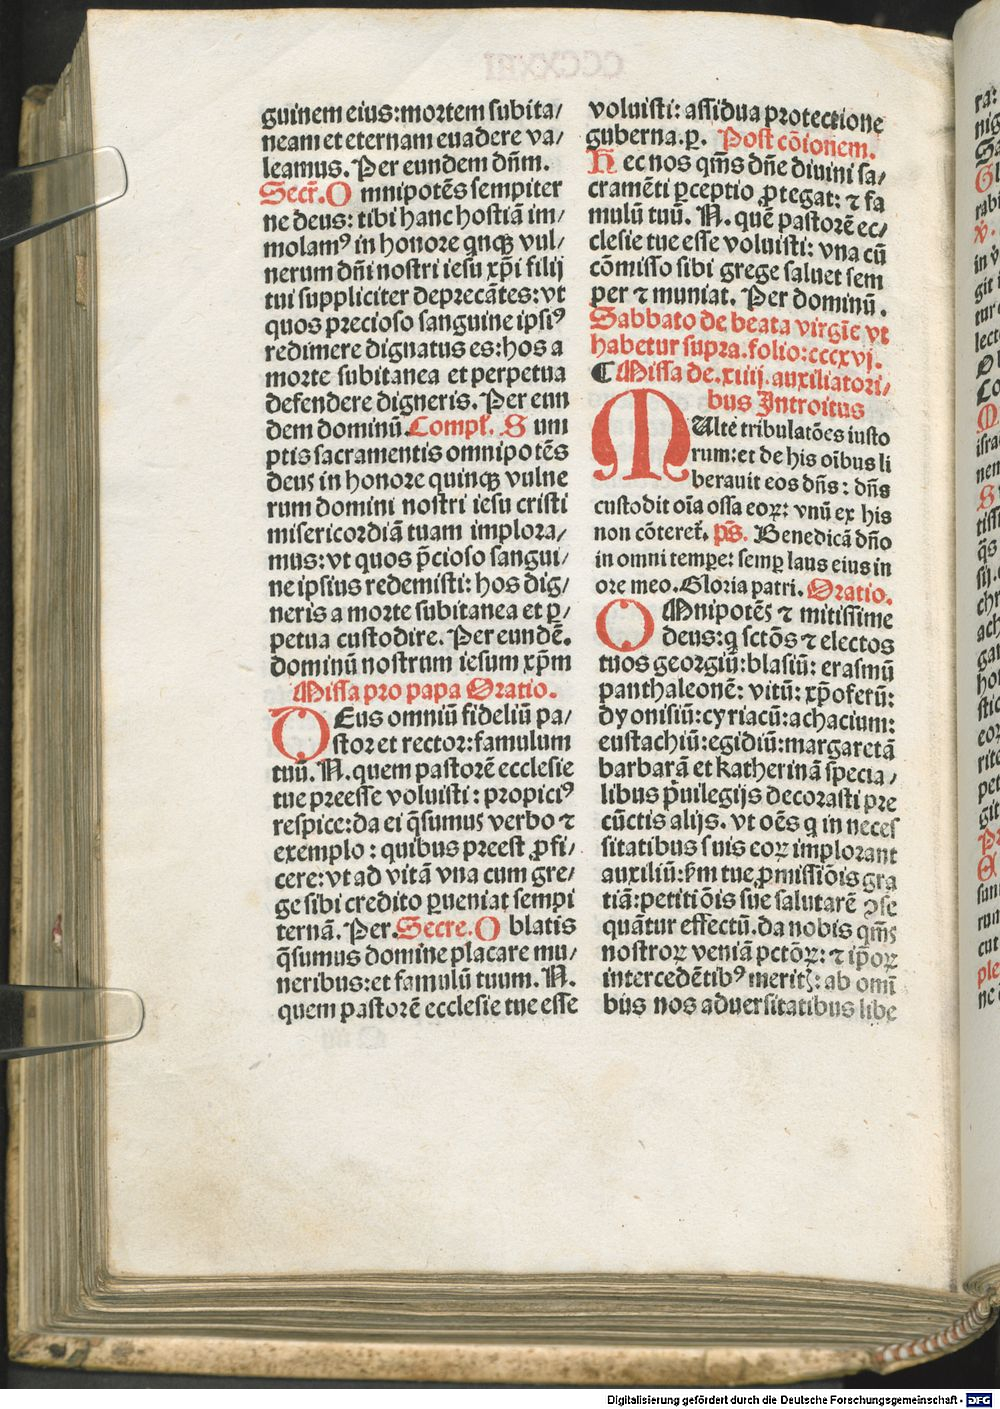 guinem eius:mortem subita/
neam et eternam euadere va/
leamus. Per eundem dn̄m.
Secr̄. O mnipotēs sempiter
ne deus: tibi hanc hostiā im/
molamꝰ in honore qnqꝫ vul/
nerum dn̄i nostri iesu xp̄i filij
tui suppliciter deprecātes: vt
quos precioso sanguine ipsiꝰ
redimere dignatus es: hos a
morte subitanea et perpetua
defendere digneris. Per eun
dem dominū. Compl̄. S um
ptis sacramentis omnipotēs
deus in honore quinqꝫ vulne
rum domini nostri iesu cristi
misericordiā tuam implora/
mus: vt quos p̄cioso sangui/
ne ipsius redemisti: hos dig/
neris a morte subitanea et ꝑ/
petua custodire. Per eundē.
dominū nostrum iesum xp̄m
Missa pro papa Oratio.
DEus omniū fideliū pa/
stor et rector: famulum
tuū. N. quem pastorē ecclesie
tue preesse voluisti: propiciꝰ
respice: da ei q̄sumus verbo ⁊
exemplo: quibus preest ꝓfi/
cere: vt ad vitā vna cum gre/
ge sibi credito ꝑueniat sempi
ternā. Per. Secre. O blatis
q̄sumus domine placare mu/
neribus: et famulū tuum. N.
quem pastorē ecclesie tue esse
voluisti: assidua protectione
guberna. ꝑ. Post cōionem.
H ec nos qm̄s dn̄e diuini sa/
cramēti ꝑceptio ꝓtegat: ⁊ fa
mulū tuū. N. quē pastorē ec/
clesie tue esse voluisti: vna cū
cōmisso sibi grege saluet sem
per ⁊ muniat. Per dominū.
Sabbato de beata virgīe vt
habetur supra. folio: cccxvj.
¶ Missa de. xiiij. auxiliatori/
bus Introitus
MUlte tribulatōes iusto
rum: et de his oībus li
berauit eos dn̄s: dn̄s
custodit oīa ossa eoꝝ: vnū ex his
non cōteret᷑. ps̄. Benedicā dn̄o
in omni tempe: semꝑ laus eius in
ore meo. Gloria patri. Oratio.
OMnipotēs ⁊ mitissime
deus: q sctōs ⁊ electos
tuos georgiū: blasiū: erasmū
panthaleonē: vitū: xp̄oferū:
dyonisiū: cyriacū: achacium:
eustachiū: egidiū: margaretā
barbarā et katherinā specia/
libus p̄uilegijs decorasti pre
cūctis alijs. vt oēs q in neces
sitatibus suis eoꝝ implorant
auxiliū: ẜm tue ꝓmissiōis gra
tiā: petitiōis sue salutarē ꝯse
quātur effectū. da nobis qm̄s
nostroꝝ veniā pctōꝝ: ⁊ ip̄oꝝ
intercedētibꝰ meritꝭ: ab omī
bus nos aduersitatibus libe
Digitalisierung gefördert durch die Deutsche Forschungsgemeinschaft - DFG